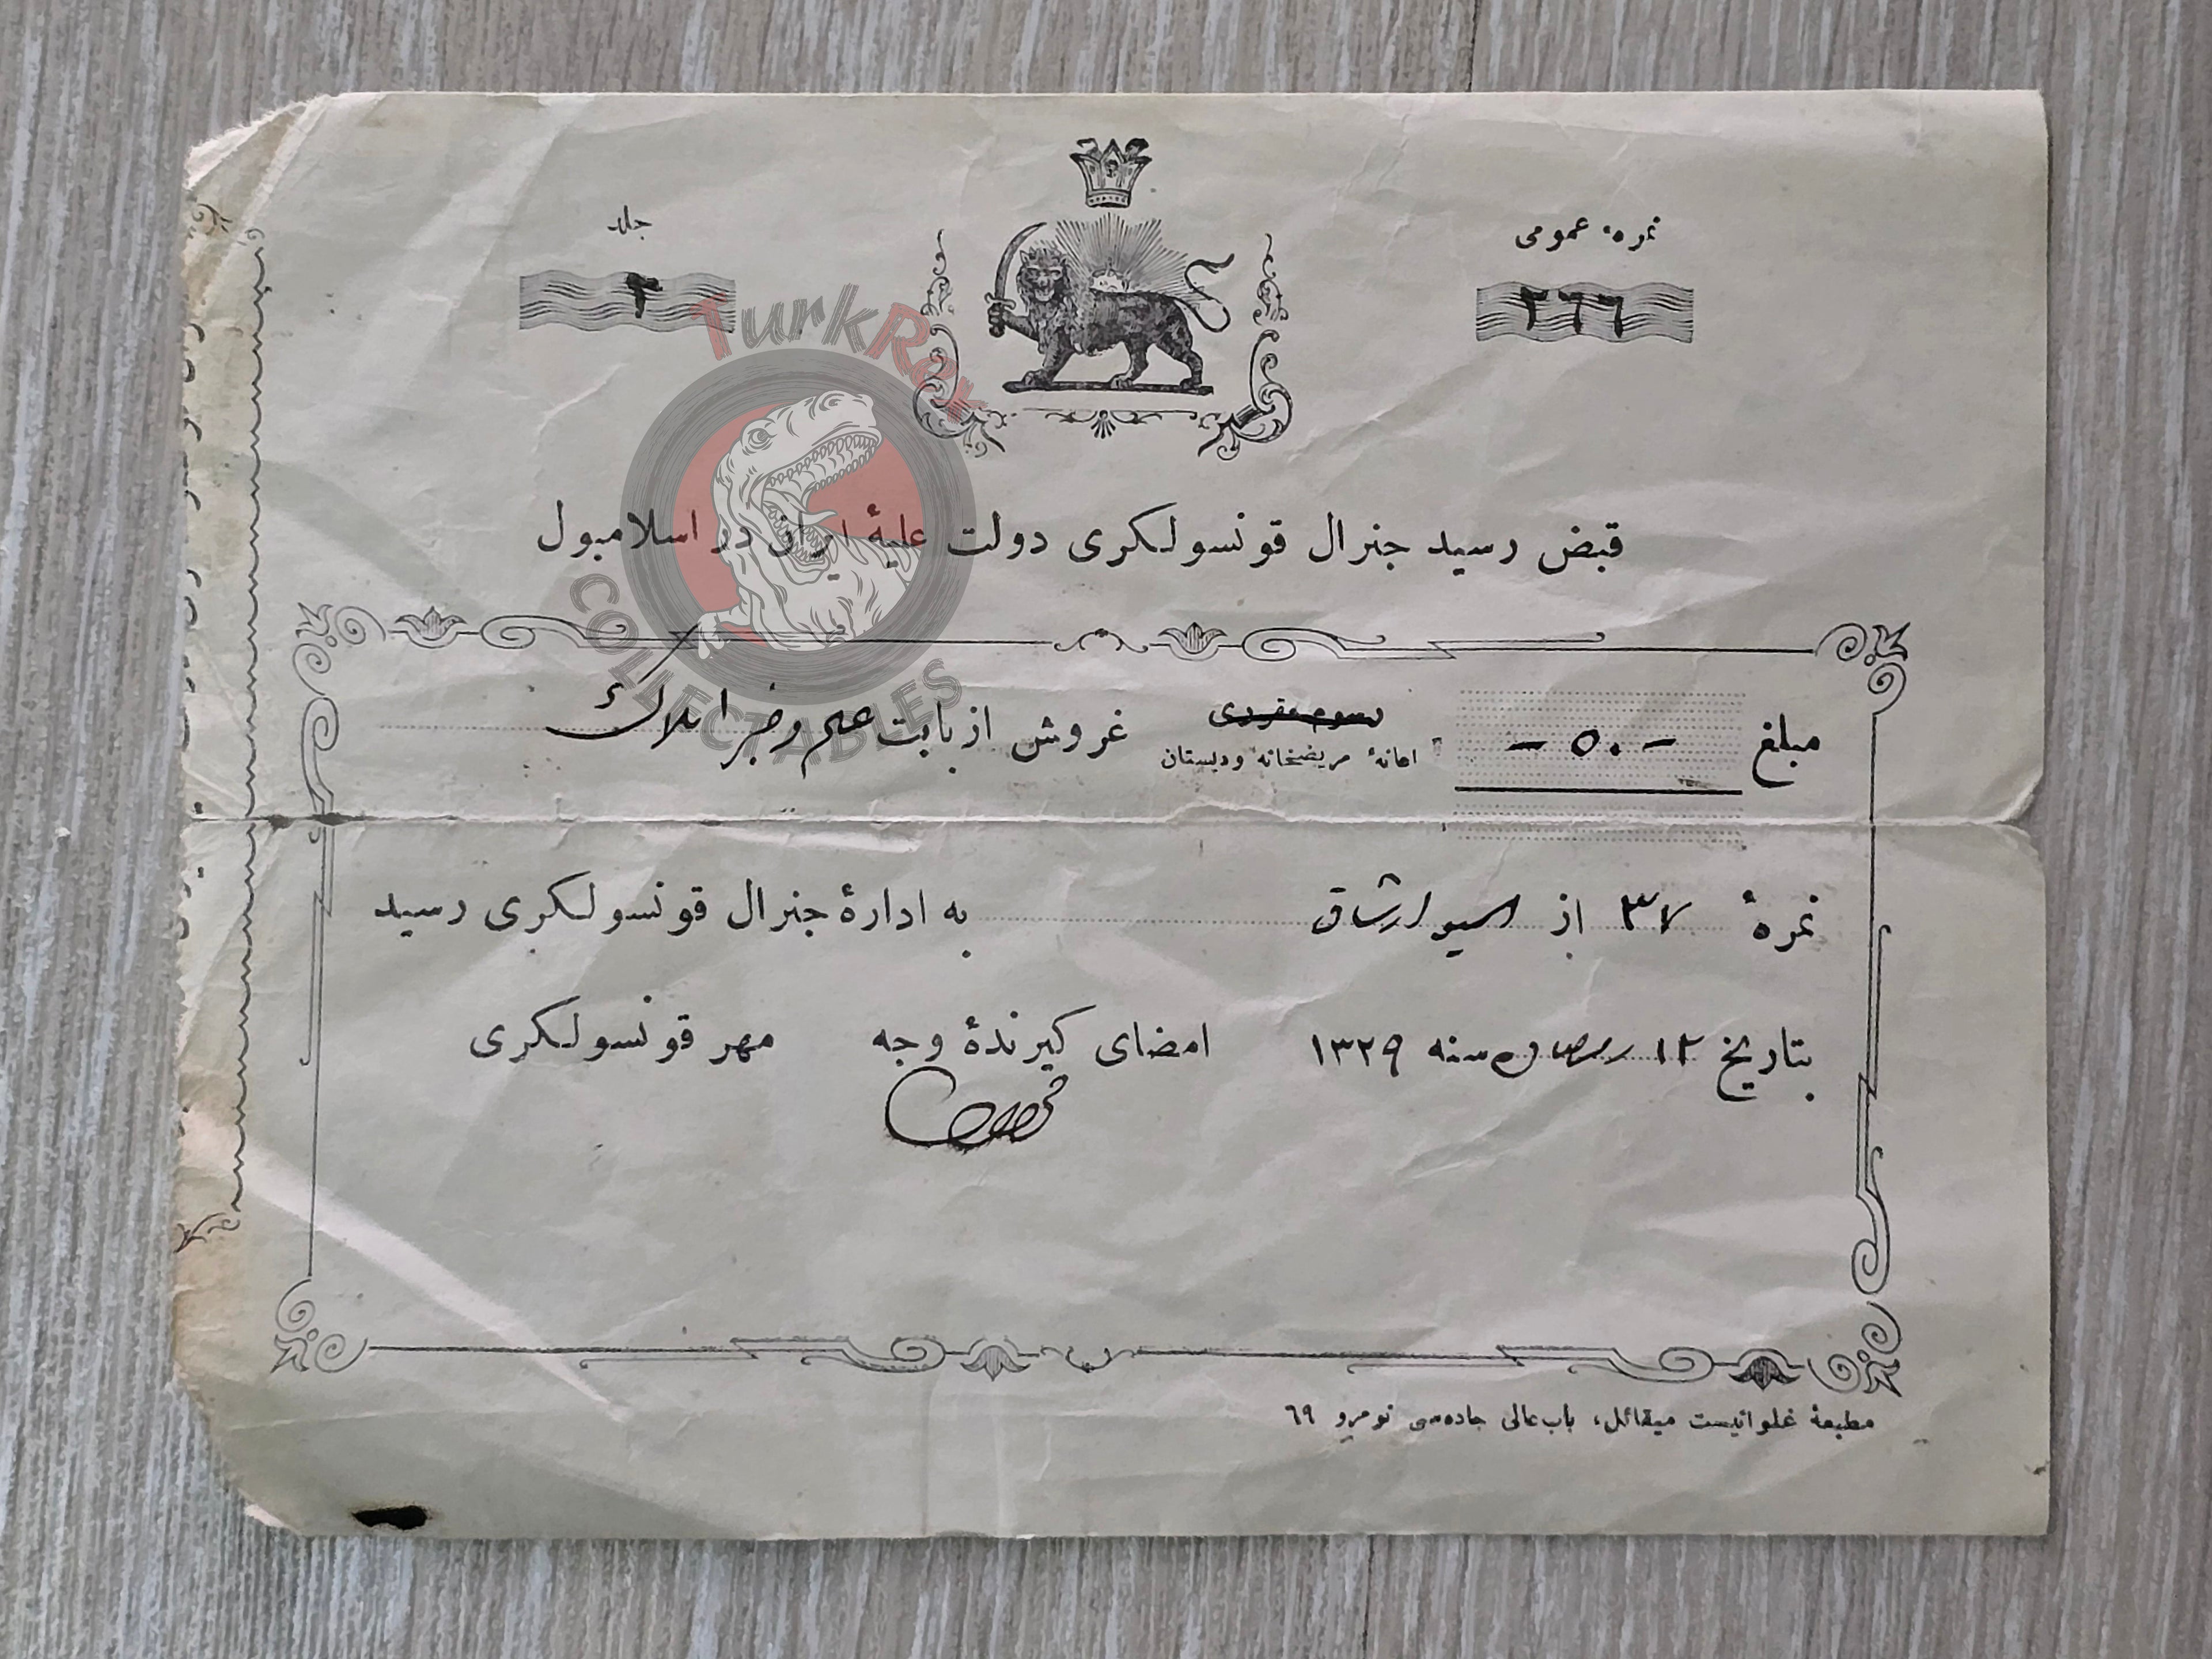 نمرهٔ عمومی
٢٦٦
جلد
٣
TurkRex
COLLECTABLES
قبض رسید جنرال قونسولکری دولت علیهٔ ایران در اسلامبول
مبلغ -٥٠- رسوم مقرری غروش از بابت علم و خبر املاک
اعانهٔ مریضخانه ودبستان
نمرهٔ ٣٧ از به ادارهٔ جنرال قونسولکری رسید
بتاریخ ١٢ رمضان سنه ١٣٢٩ امضای کیرندهٔ وجه مهر قونسولکری
مطبعهٔ غلوانیست میقائل، باب عالی جاده‌سی نومرو ٦٩